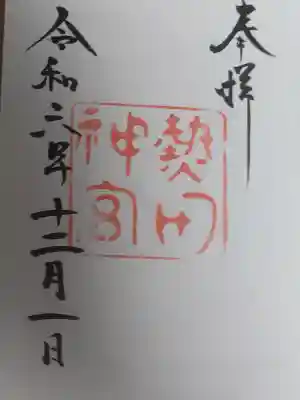 奉拝
熱田
神宮
令和六年十二月一日